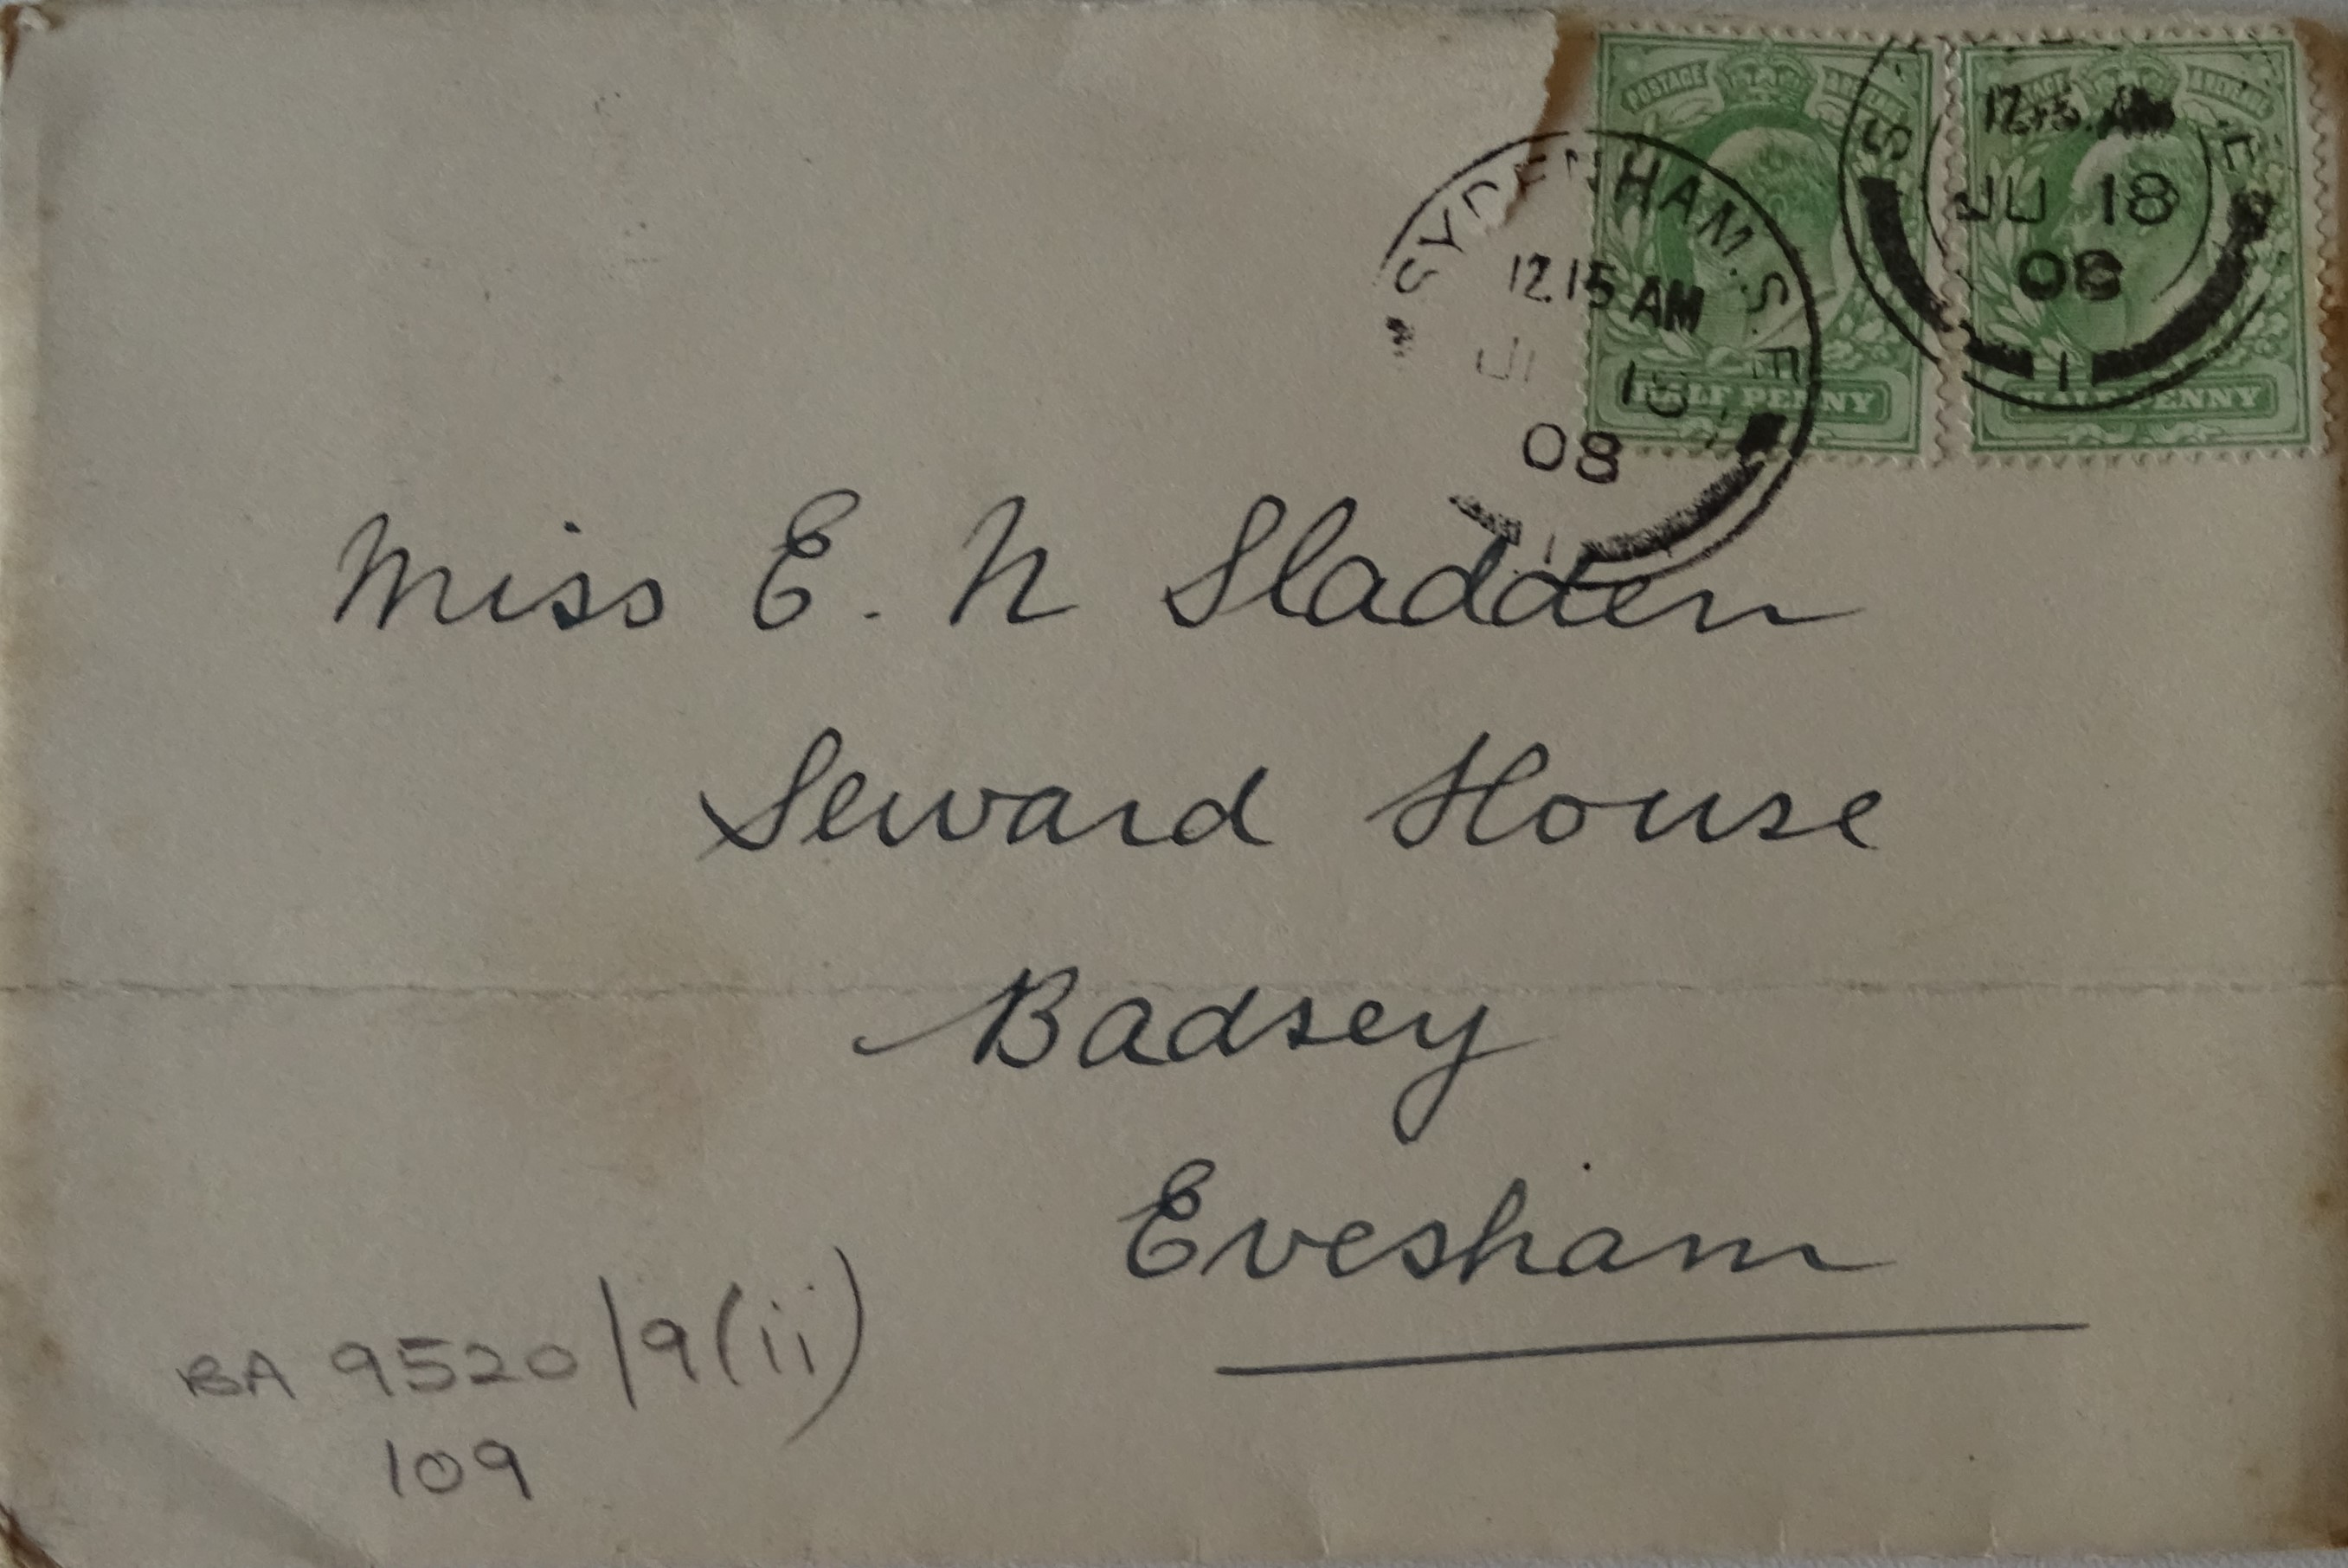 POSTAGE
HALF PENNY
HALF PENNY
SYDENHAM. S. E
12.15 AM
18
08
1
S E
12.15 AM
JU 18
08
1
Miss E. N Sladden
Seward House
Badsey
Evesham
BA 9520/9(ii)
109